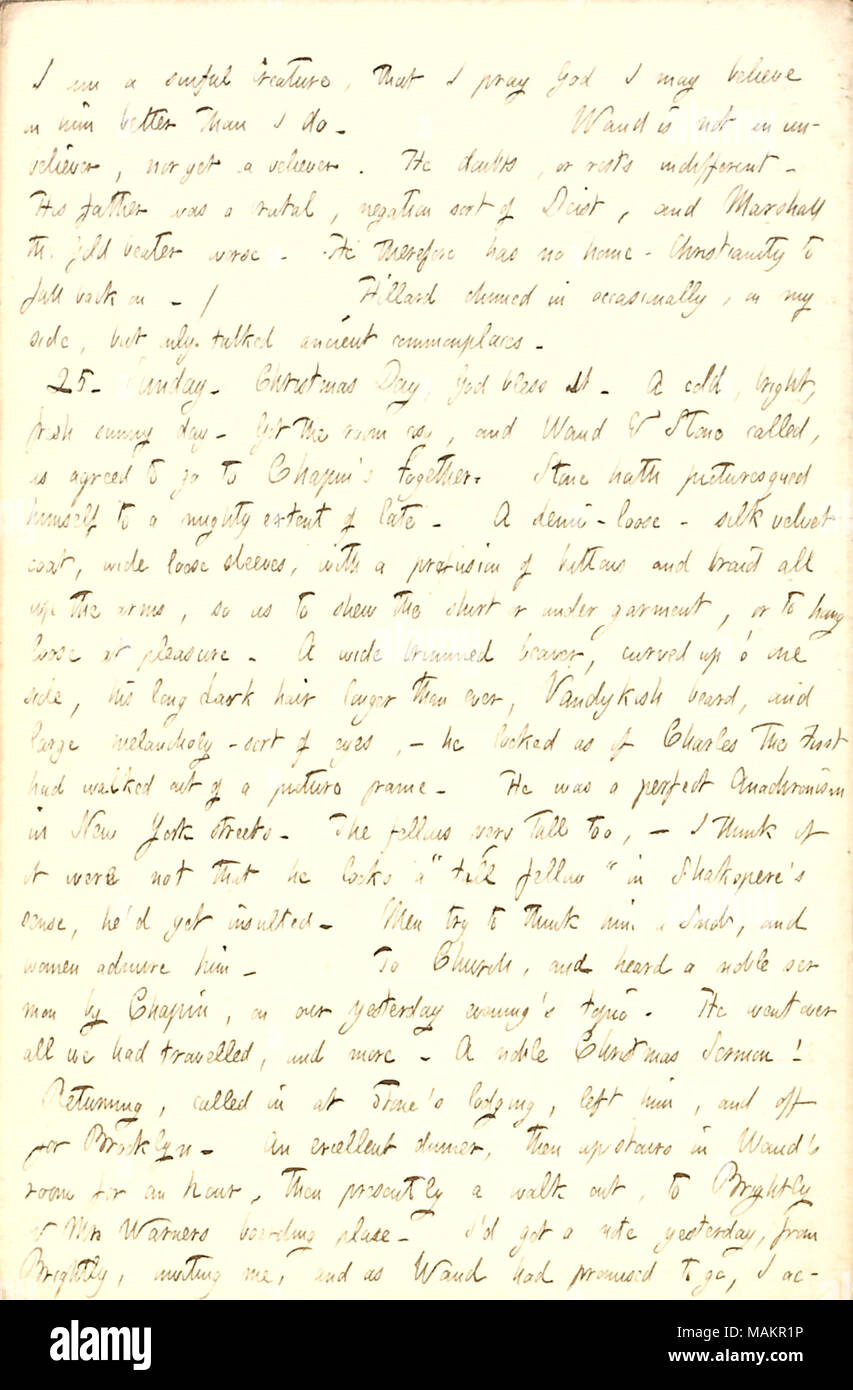 I am a sinful creature, that I pray God I may believe
in him better than I do_ Wand is not an un-
believer, nor yet a believer. He doubts, or rests indifferent_
His father was a brutal, negation sort of Deist, and Marshall
the gold beater worse_ He therefore has no home-Christianity to
fall back on_ / Hillard chimed in occasionally, on my
side, but only talked ancient commonplaces_
25_ Sunday_ Christmas Day, God bless it_ A cold, bright,
fresh sunny day_ Got the room and Waud & Stone called,
as agreed to go to Chapin's together. Stone hath picturesqued
himself to a mighty extent of late_ A demi-loose-silk velvet
coat, wide loose sleeves, with a profusion of buttons and braid all
up the arms, so as to shew the shirt or under garment, or to hang
loose at pleasure_ A wide brimmed beaver, curved up o' one
side, his long dark hair longer than ever, Vandykish beard, and
large melancholy-sort of eyes,_ he looked as if Charles the First
had walked out of a picture frame_ He was a perfect Anachronism
in New York streets_ The fellows very tall too,_ I think if
it were not that he looks a "tall fellow" in Shakspere's
sense, he'd get insulted_ Men try to think him a Snob, and
women admire him_ To Church, and heard a noble ser
mon by Chapin, on our yesterday evening's topic. He went over
all we had travelled, and more_ A noble Christmas Sermon!
Returning, called in at Stone's lodging, left him, and off
for Brooklyn_ An excellent dinner, then upstairs in Waud's
room for an hour, then presently a walk out, to Brightly
& Mrs Warners boarding place_ I'd got a note yesterday, from
Brightly, inviting me, and as Waud had promised to go, I ac-
alamy
Image ID: MAKR1P
www.alamy.com